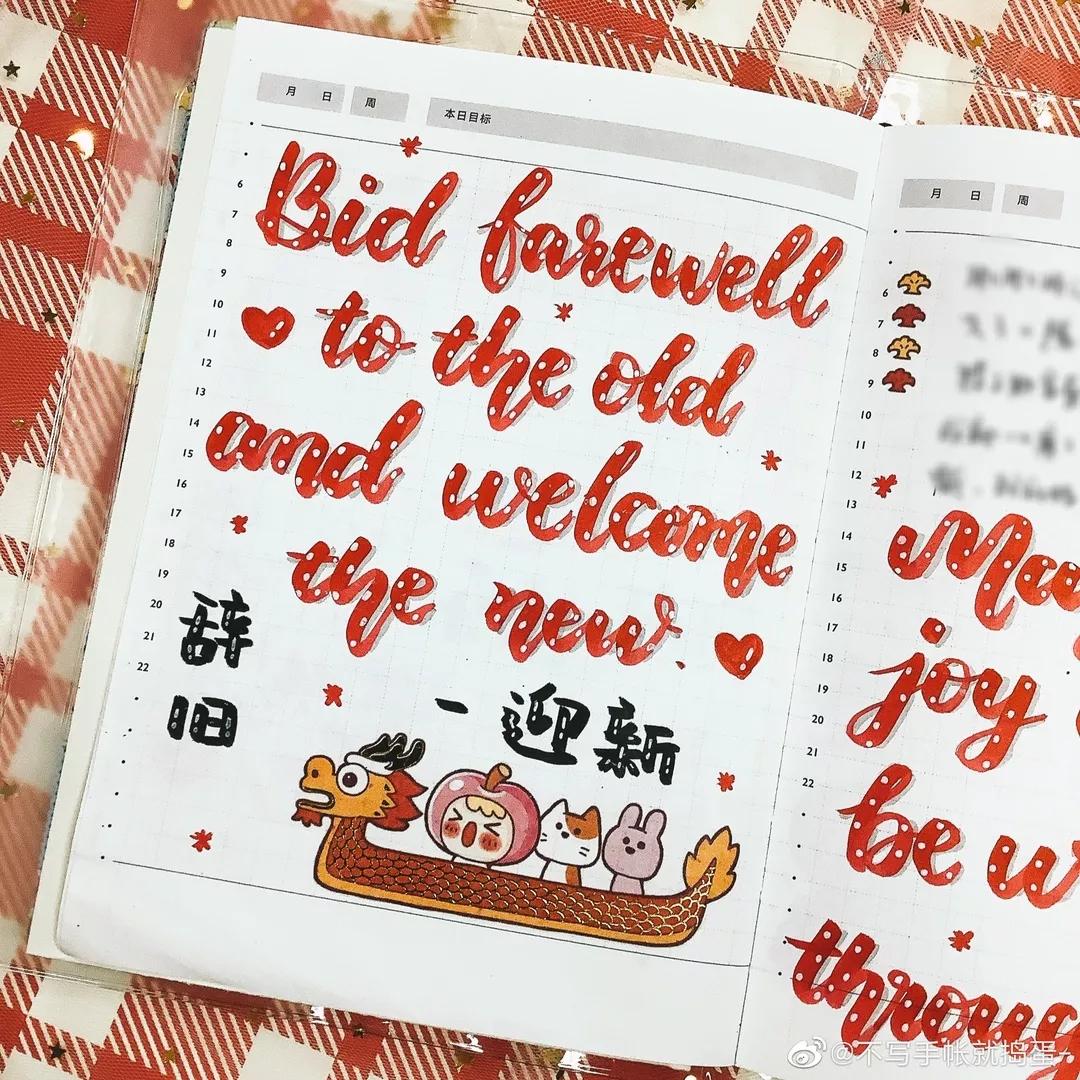 月 日 周 本日目标
Bid farewell
to the old
and welcome
the new.
辞
旧
一迎新
6
7
8
9
10
11
12
13
14
15
16
17
18
19
20
21
22
月 日 周
joy
be
6
7
8
9
10
11
12
13
14
15
16
17
18
19
20
21
22
@不写手帐就捣蛋